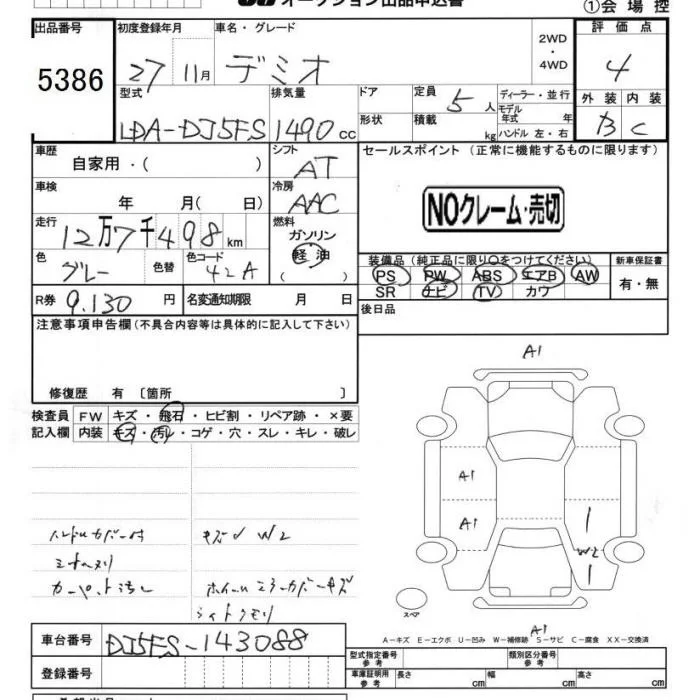 オークション出品申込書
①会場控
出品番号 初度登録年月 車名・グレード 2WD・4WD 評価点
5386 27 11月 デミオ 4
型式 排気量 ドア 定員 5人 ディーラー・並行 外装 内装
LDA-DJ5FS 1490cc 形状 積載 kg モデル年式 年 ハンドル 左・右 B C
車歴 自家用・( ) シフト AT セールスポイント (正常に機能するものに限ります)
車検 年 月( 日) 冷房 AAC
NOクレーム・売切
走行 12万7千498km 燃料 ガソリン 軽油 ( )
色 グレー 色替 色コード 42A
装備品 (純正品に限り○をつけてください) 新車保証書
PS PW ABS エアB AW 有・無
SR ナビ TV カワ
R券 9.130円 名変通知期限 月 日 後日品
注意事項申告欄 (不具合内容等は具体的に記入して下さい)
修復歴 有 〔箇所 〕
検査員 FW キズ・飛石・ヒビ割・リペア跡・×要
記入欄 内装 キズ・汚レ・コゲ・穴・スレ・キレ・破レ
A1
A1
A1
W2
キズ W2
スペア
A1
A-キズ E-エクボ U-凹み W-補修跡 S-サビ C-腐食 XX-交換済
車台番号 DJ5FS-143088
登録番号
型式指定番号 参考 類別区分番号 参考
車庫証明用 参考 長さ cm 幅 cm 高さ cm